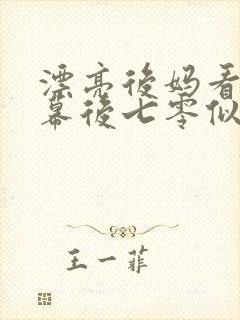 漂亮後媽看
幕後七零似
王一菲